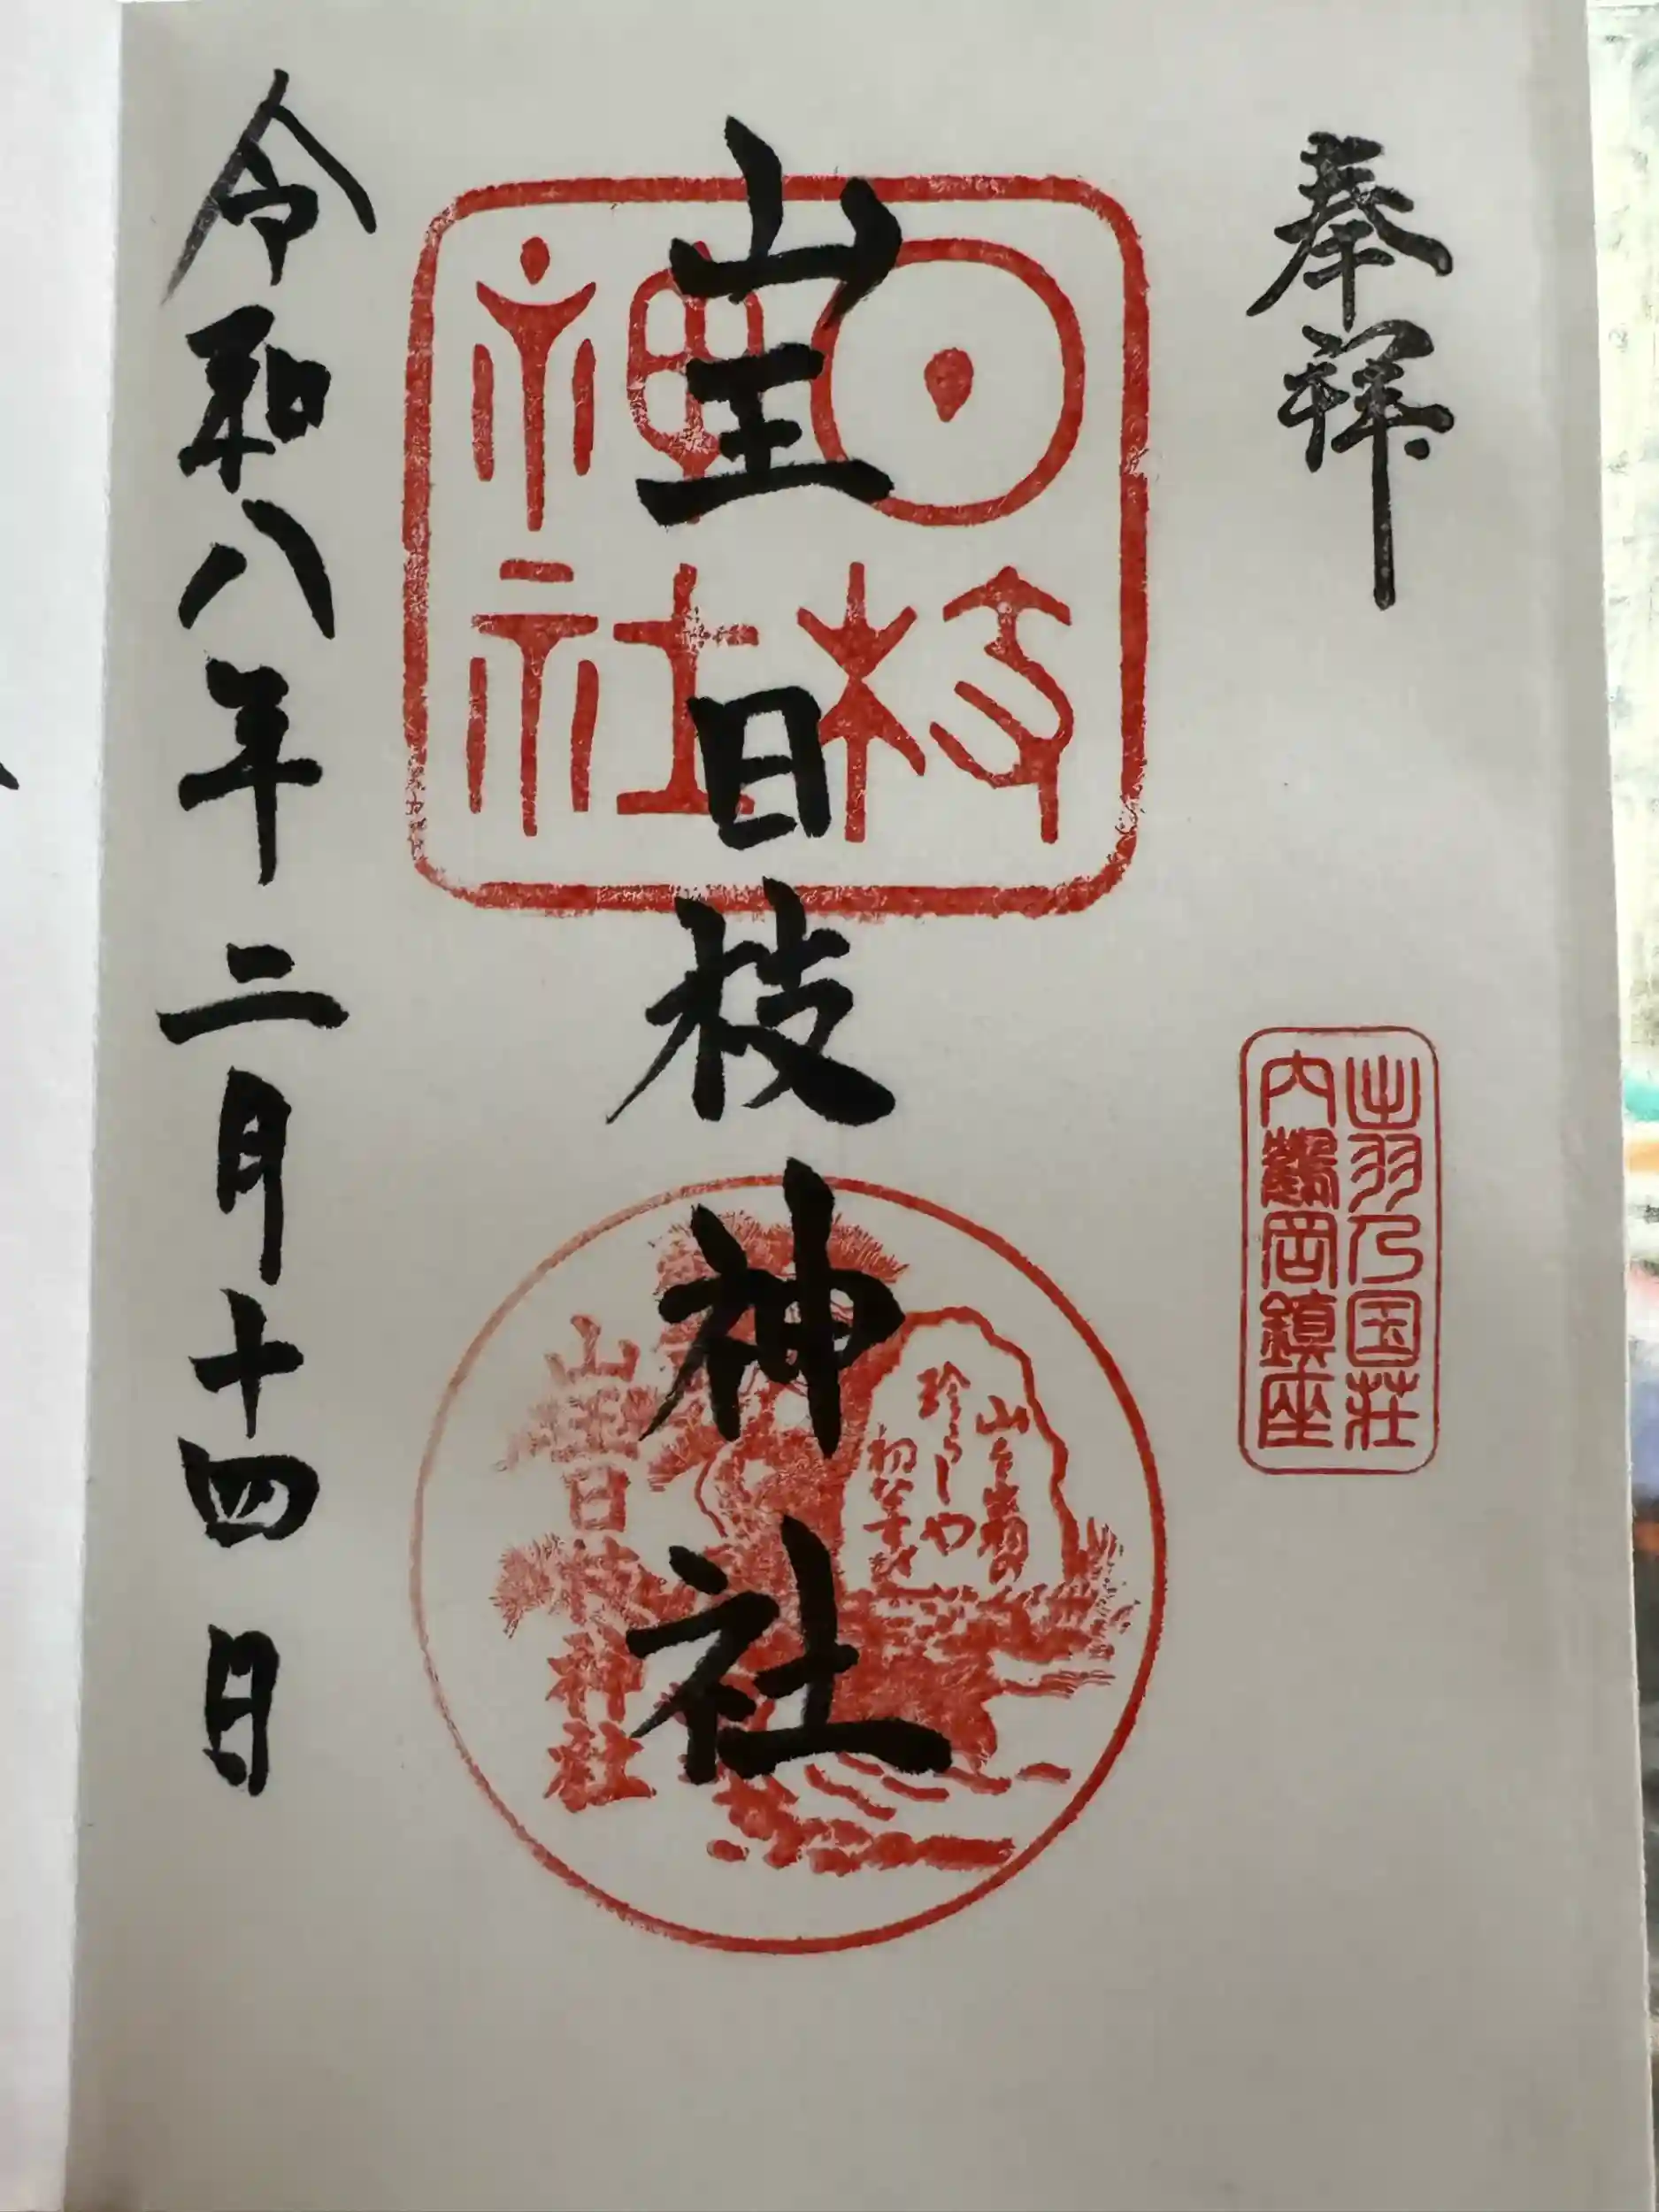 奉拝
出羽乃国荘
内鶴岡鎮座
山王日枝神社
日枝
神社
珍らしや
山を出羽の
初なすび
山王日枝神社
令和八年二月十四日